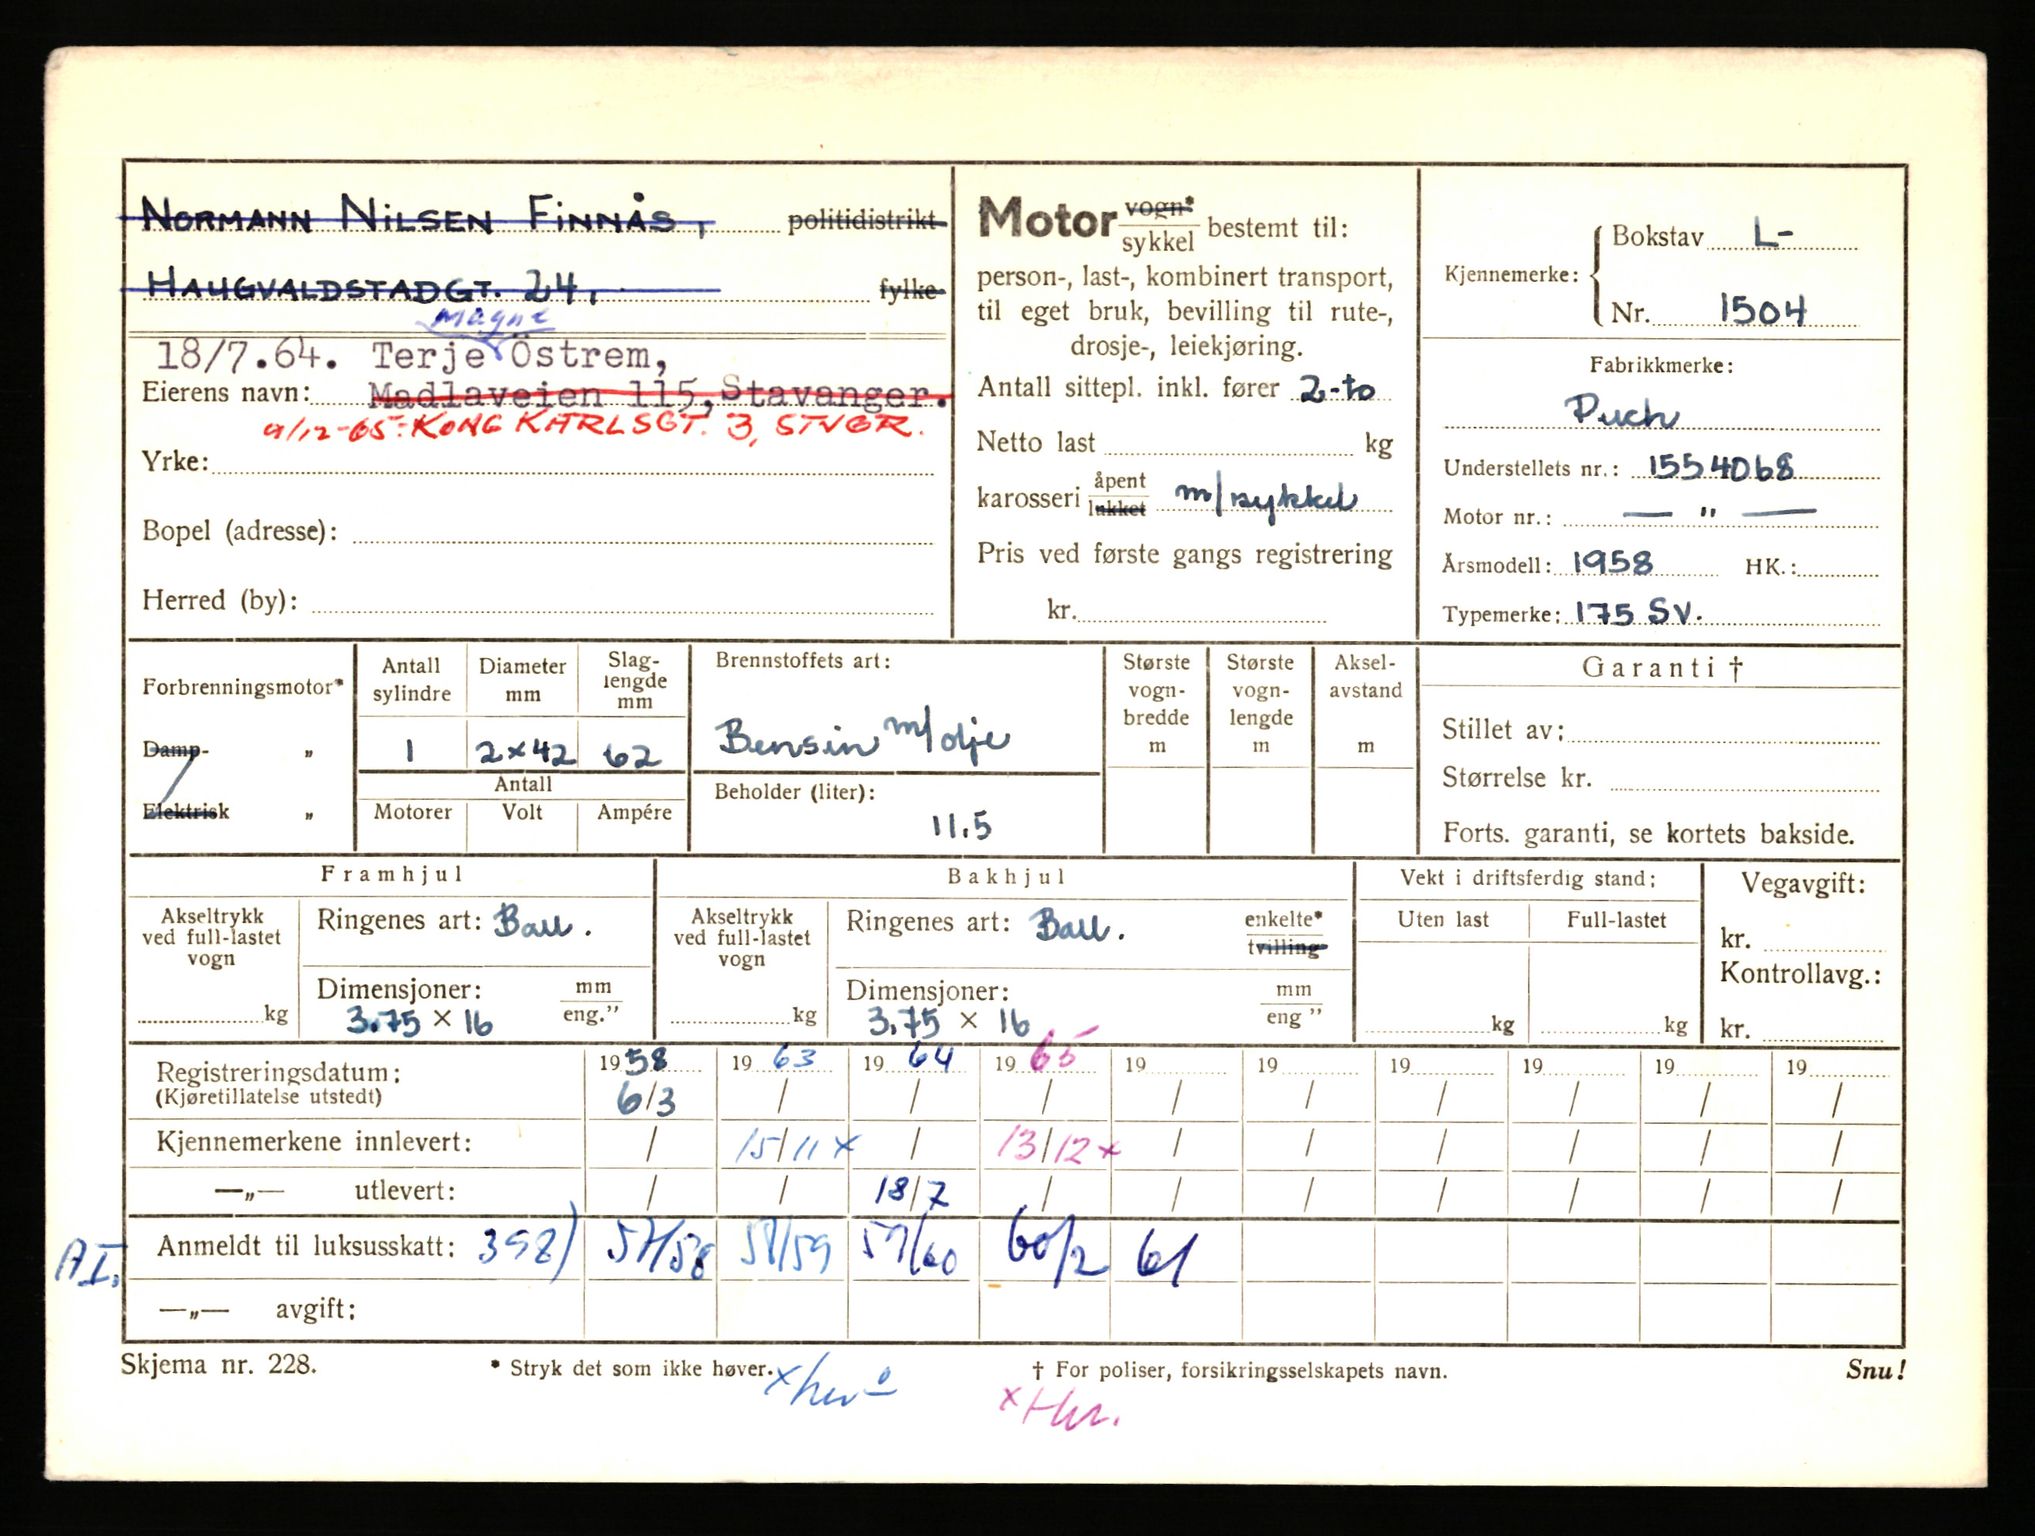 NORMANN NILSEN FINNÅS, politidistrikt
HAUGVALDSTADGT. 24, fylke
Magne
18/7.64. Terje Östrem,
Eierens navn: Madlaveien 115, Stavanger.
9/12-65: KONG KARLSGT. 3, STVGR.
Yrke:
Bopel (adresse):
Herred (by):
Motor vogn* sykkel bestemt til:
person-, last-, kombinert transport,
til eget bruk, bevilling til rute-,
drosje-, leiekjøring.
Antall sittepl. inkl. fører 2-to
Netto last kg
karosseri åpent lukket m/sykkel
Pris ved første gangs registrering
kr.
Kjennemerke: Bokstav L-
Nr. 1504
Fabrikkmerke:
Puch
Understellets nr.: 1554068
Motor nr.: — " —
Årsmodell: 1958 HK.:
Typemerke: 175 SV.
Forbrenningsmotor*
Damp- "
Elektrisk "
Antall sylindre
Diameter mm
Slag-lengde mm
1 2x42 62
Antall
Motorer Volt Ampére
Brennstoffets art:
Bensin m/olje
Beholder (liter):
11.5
Største vogn-bredde m
Største vogn-lengde m
Aksel-avstand m
Garanti †
Stillet av:
Størrelse kr.
Forts. garanti, se kortets bakside.
Framhjul
Akseltrykk ved full-lastet vogn
kg
Ringenes art: Ball.
Dimensjoner: mm eng."
3.75 × 16
Bakhjul
Akseltrykk ved full-lastet vogn
kg
Ringenes art: Ball. enkelte* tvilling
Dimensjoner: mm eng "
3.75 × 16
Vekt i driftsferdig stand:
Uten last Full-lastet
kg kg
Vegavgift:
kr.
Kontrollavg.:
kr.
Registreringsdatum: 1958 1963 1964 1965 19 19 19 19 19 19
(Kjøretillatelse utstedt) 6/3 / / / / / / / / /
Kjennemerkene innlevert: / 15/11 x / 13/12 x / / / / / /
—„— utlevert: / / 18/7 / / / / / / /
AI. Anmeldt til luksusskatt: 398) 57/58 58/59 59/60 60/2 61
—„— avgift:
Skjema nr. 228. * Stryk det som ikke høver. † For poliser, forsikringsselskapets navn. Snu!